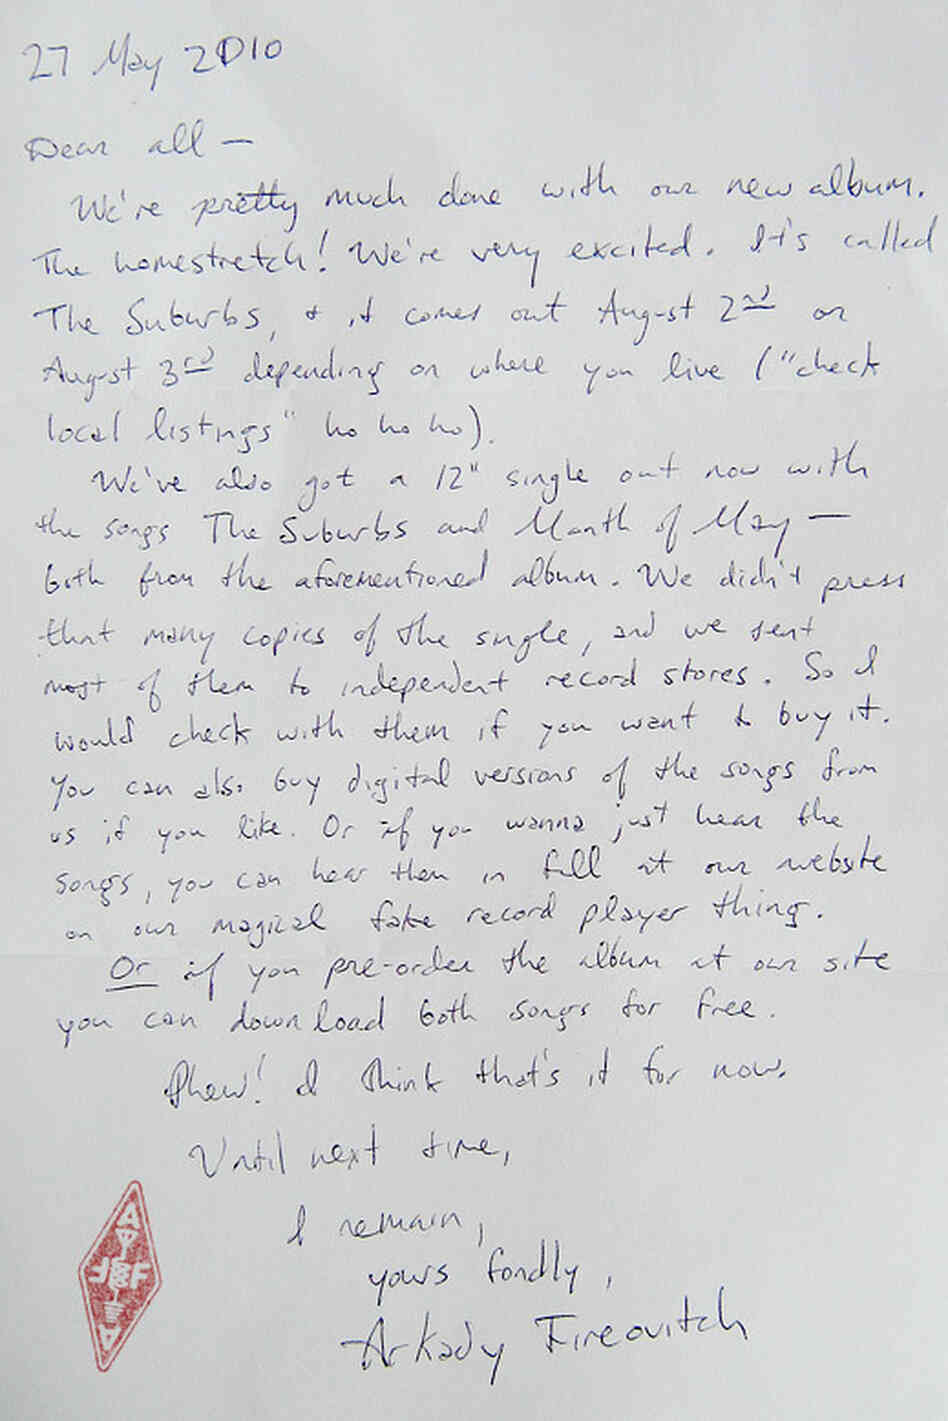 27 May 2010
Dear all —
We're pretty much done with our new album.
The homestretch! We're very excited. It's called
The Suburbs, & it comes out August 2nd or
August 3rd depending on where you live ("check
local listings" ho ho ho).
We've also got a 12" single out now with
the songs The Suburbs and Month of May —
both from the aforementioned album. We didn't press
that many copies of the single, and we sent
most of them to independent record stores. So I
would check with them if you want to buy it.
You can also buy digital versions of the songs from
us if you like. Or if you wanna just hear the
songs, you can hear them in full at our website
on our magical fake record player thing.
Or if you pre-order the album at our site
you can download both songs for free.
Phew! I think that's it for now.
Until next time,
I remain,
yours fondly,
Arkady Fireovitch